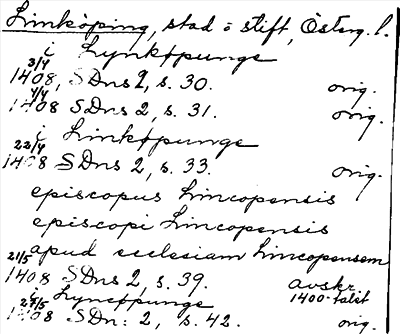 Linköping, stad o stift, Österg. l.
i Lynköpunge
3/4
1408, SDns 2, s. 30. orig.
4/4
1408 SDns 2, s. 31. orig.
i Linköpunge
22/4
1408 SDns 2, s. 33. orig.
episcopus Lincopensis
episcopi Lincopensis
apud ecclesiam Lincopensem
21/5
1408 SDns 2, s. 39. avskr. 1400-talet
i Lyncöpunge
27/5
1408 SDns 2, s. 42. orig.